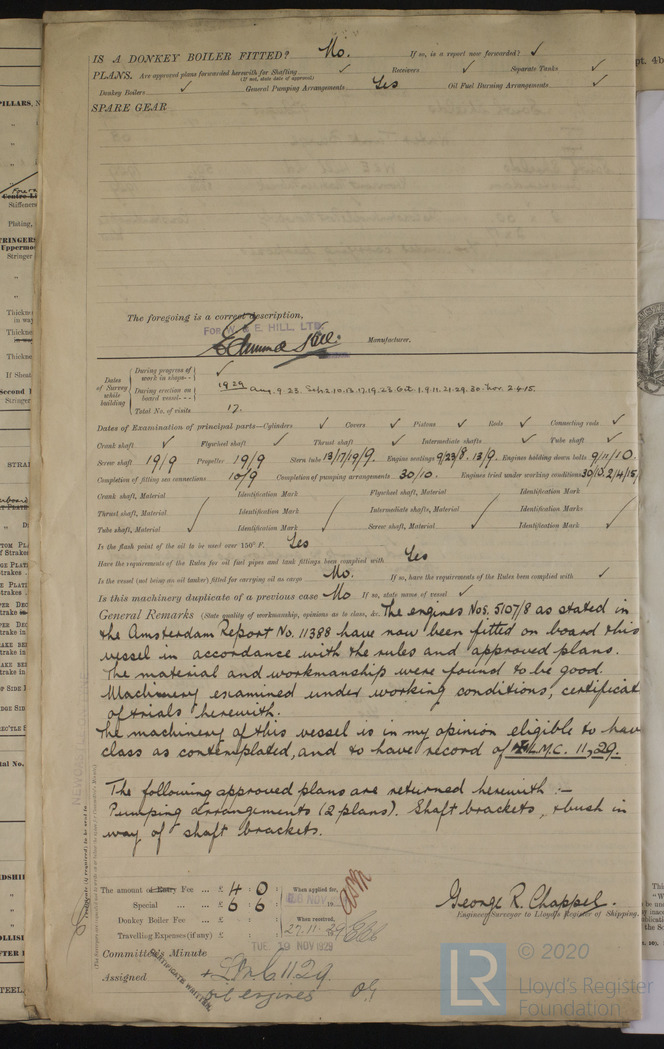 IS A DONKEY BOILER FITTED? No. If so, is a report now forwarded? ✓
PLANS. Are approved plans forwarded herewith for Shafting ✓ Receivers ✓ Separate Tanks ✓
(If not, state date of approval)
Donkey Boilers ✓ General Pumping Arrangements Yes Oil Fuel Burning Arrangements ✓
SPARE GEAR
The foregoing is a correct description,
FOR W. & E. HILL, LTD.
Edmund Hill. Manufacturer.
Dates of Survey while building
During progress of work in shops-- ✓
During erection on board vessel--- 1929 Aug. 9. 23. Sep. 2. 10. 13. 17. 19. 23. Oct. 1. 9. 11. 21. 29. 30. Nov. 2. 4. 15.
Total No. of visits 17.
Dates of Examination of principal parts—Cylinders ✓ Covers ✓ Pistons ✓ Rods ✓ Connecting rods ✓
Crank shaft ✓ Flywheel shaft ✓ Thrust shaft ✓ Intermediate shafts ✓ Tube shaft ✓
Screw shaft 19/9 Propeller 19/9 Stern tube 13/17/19/9. Engine seatings 9/23/8. 13/9. Engines holding down bolts 9/11/10.
Completion of fitting sea connections 10/9 Completion of pumping arrangements 30/10. Engines tried under working conditions 30/10. 2/4/15/
Crank shaft, Material Identification Mark Flywheel shaft, Material Identification Mark
Thrust shaft, Material Identification Mark Intermediate shafts, Material Identification Marks
Tube shaft, Material Identification Mark Screw shaft, Material Identification Mark
Is the flash point of the oil to be used over 150° F. Yes
Have the requirements of the Rules for oil fuel pipes and tank fittings been complied with Yes
Is the vessel (not being an oil tanker) fitted for carrying oil as cargo No. If so, have the requirements of the Rules been complied with ✓
Is this machinery duplicate of a previous case No If so, state name of vessel ✓
General Remarks (State quality of workmanship, opinions as to class, &c. The engines Nos. 5107/8 as stated in
the Amsterdam Report No. 11388 have now been fitted on board this
vessel in accordance with the rules and approved plans.
The material and workmanship were found to be good.
Machinery examined under working conditions, certificat
of trials herewith.
The machinery of this vessel is in my opinion eligible to hav
class as contemplated, and to have record of ✠ L.M.C. 11,29.
The following approved plans are returned herewith :-
Pumping arrangements (2 plans). Shaft brackets, & bush in
way of shaft brackets.
The amount of Entry Fee ... £ 4 : 0 : When applied for,
Special ... £ 6 : 6 : NOV 19
Donkey Boiler Fee ... £ : : When received,
Travelling Expenses (if any) £ : : 27.11.29
George R. Chappel.
Engineer Surveyor to Lloyd's Register of Shipping.
Committee's Minute TUE 19 NOV 1929
Assigned + LMC 11 29.
oil engines OG
CERTIFICATE WRITTEN
© 2020
LR
Lloyd's Register
Foundation